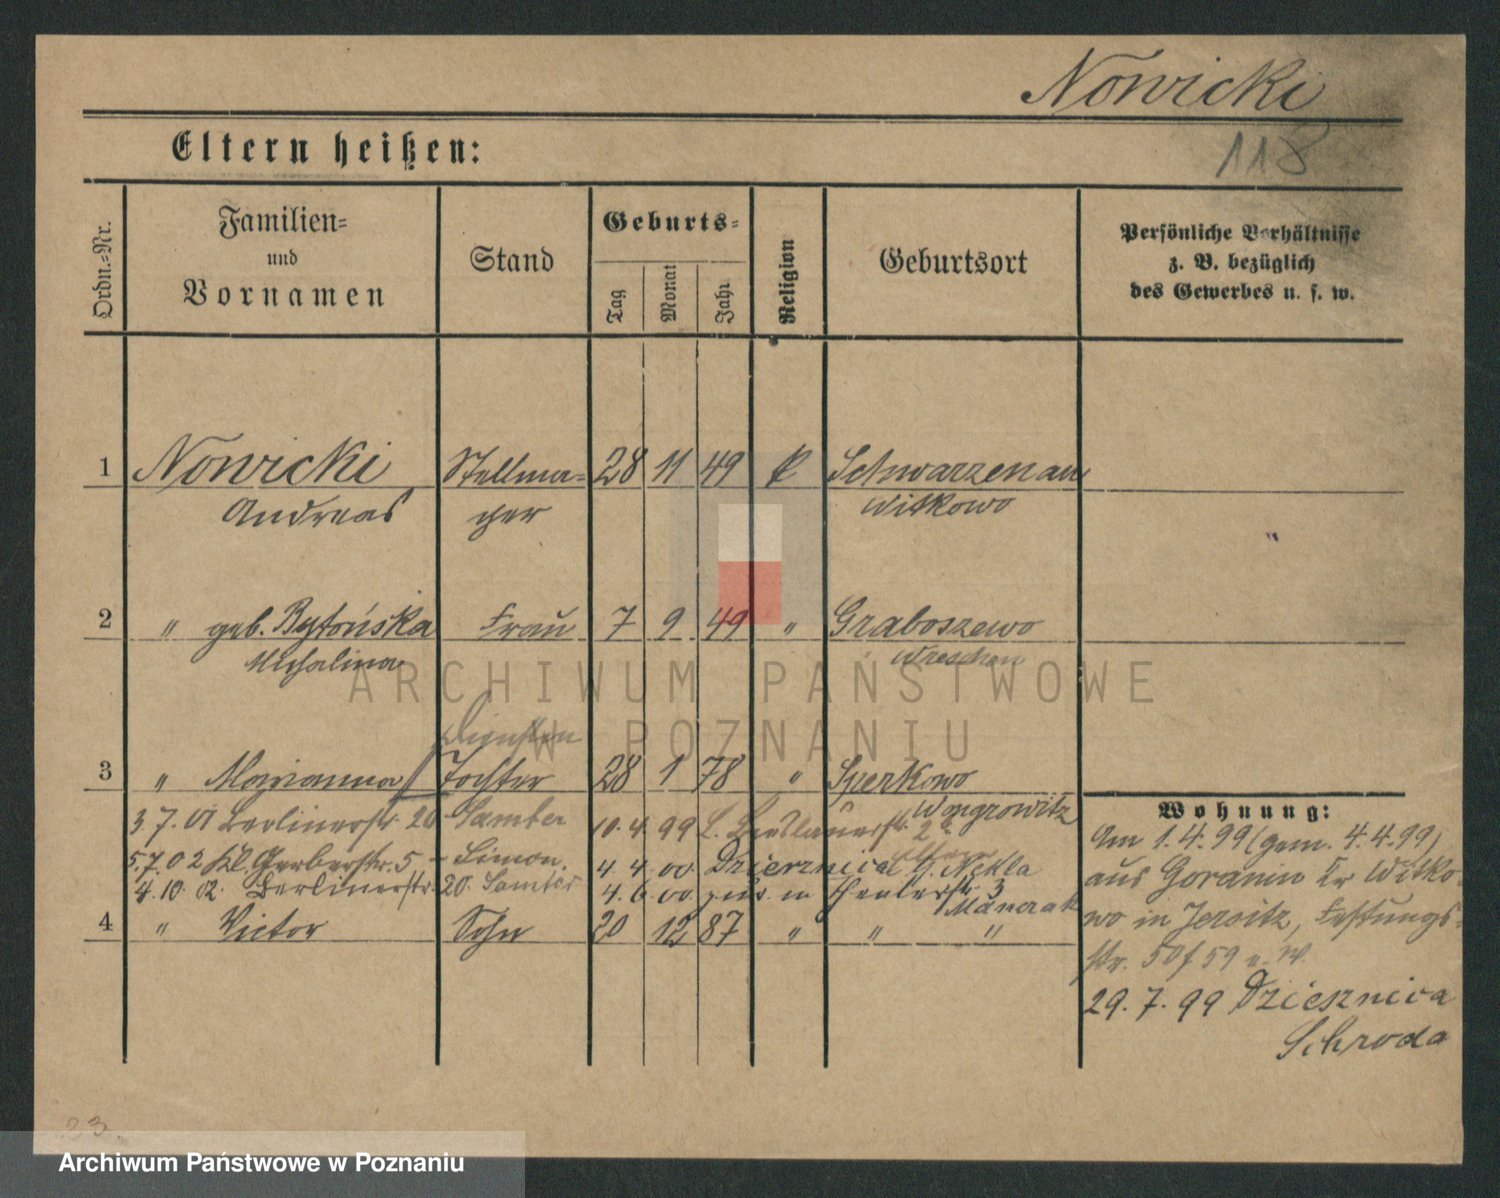 Nowicki
118
Eltern heißen:
Ordn.=Nr.
Familien=
und
Vornamen
Stand
Geburts=
Tag
Monat
Jahr
Religion
Geburtsort
Persönliche Verhältnisse
z. B. bezüglich
des Gewerbes u. s. w.
1 Nowicki Stellma= 28 11 49 k Schwarzenau
Andreas cher Witkowo
2 " geb. Rytońska Frau 7 9 49 " Graboszewo
Michalina Wreschen
3 " Marianna Tochter 28 1 78 " Sperkowo
Wongrowitz
3.7.01 Berlinerstr. 20 Samter 10.4.99 Breslauerstr.
5.7.02 Kl. Gerberstr. 5 - Simon. 4.4.00 Dzierznica
4.10.02. Berlinerstr. 20. Samter 4.6.00 in 3
4 " Victor Sohn 20 12 87 " " "
Wohnung:
Am 1.4.99 (gem. 4.4.99)
aus Goranin Kr Witko
wo in Jersitz, Festungs
str. 50/59 b. W.
29.7.99 Dziesznica
Schroda
23.
ARCHIWUM PAŃSTWOWE
W POZNANIU
Archiwum Państwowe w Poznaniu